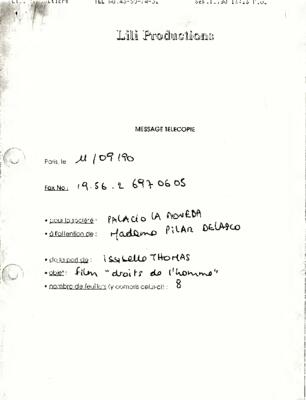 Lili Productions
MESSAGE TELECOPIE
Paris, le 11/09/90
Fax No : 19.56.2 697 06 05
• pour la société : PALACIO LA MONEDA
• à l'attention de : Madame PILAR DELASCO
• de la part de : isabelle THOMAS
• objet : film "droits de l'homme"
• nombre de feuillets (y compris celui-ci) : 8